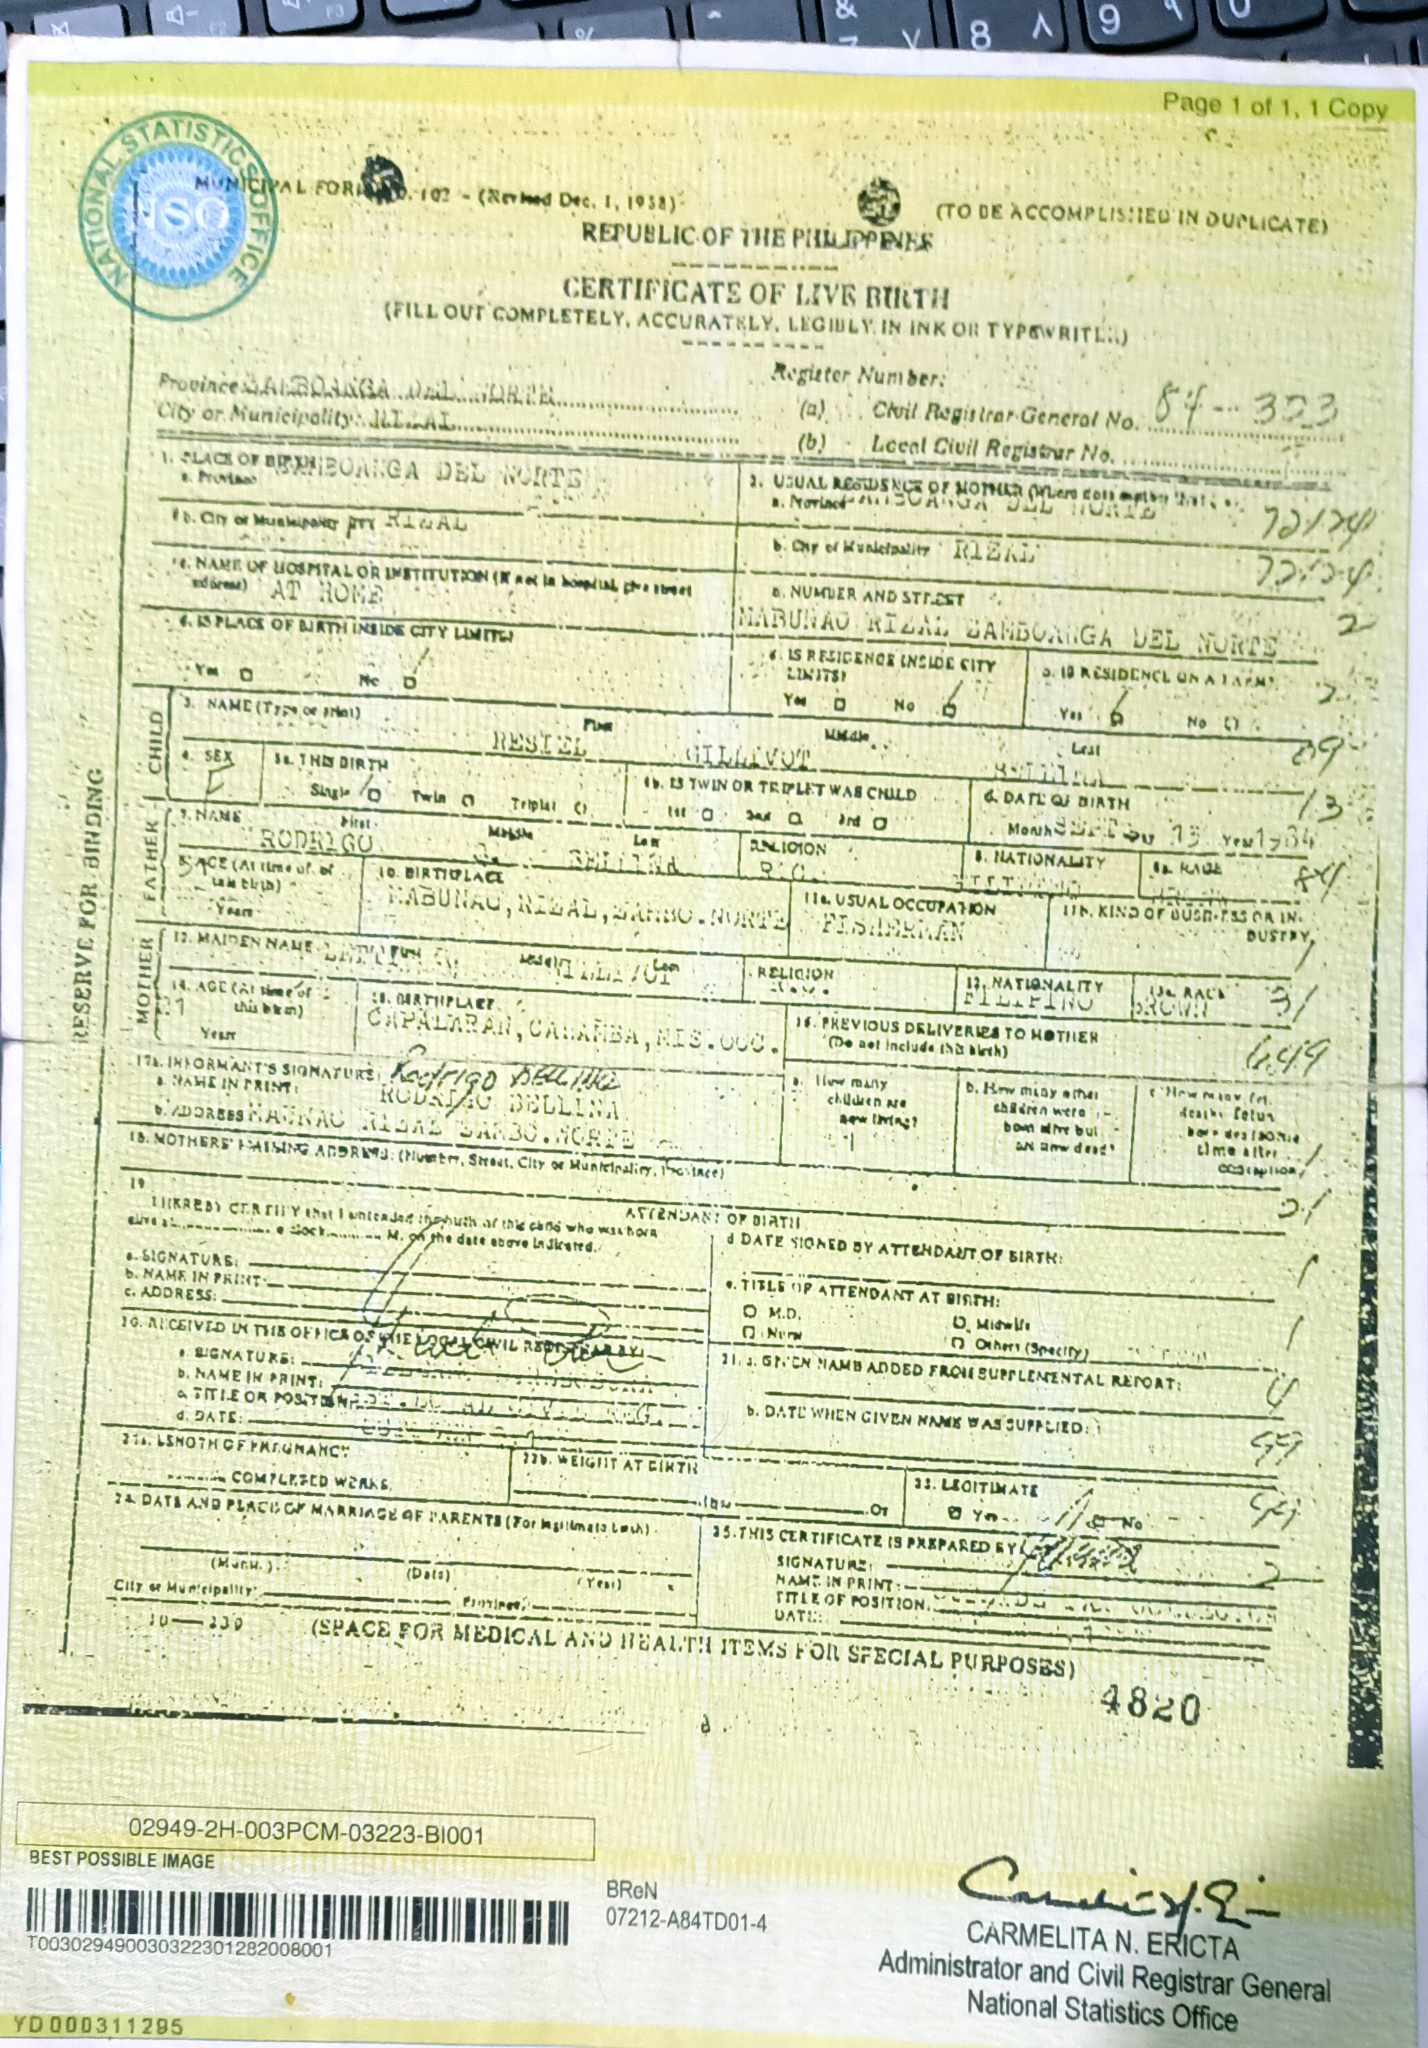 Page 1 of 1, 1 Copy
NATIONAL STATISTICS OFFICE
MUNICIPAL FORM NO. 102 - (Revised Dec. 1, 1958)
(TO BE ACCOMPLISHED IN DUPLICATE)
REPUBLIC OF THE PHILIPPINES
CERTIFICATE OF LIVE BIRTH
(FILL OUT COMPLETELY, ACCURATELY, LEGIBLY, IN INK OR TYPEWRITER)
Province: ZAMBOANGA DEL NORTE
Register Number:
City or Municipality: RIZAL
(a) Civil Registrar-General No. 84-
(b) Local Civil Registrar No.
1. PLACE OF BIRTH
a. Province ZAMBOANGA DEL NORTE
2. USUAL RESIDENCE OF MOTHER (Where does mother live)
a. Province ZAMBOANGA DEL NORTE
b. City or Municipality RIZAL
b. City or Municipality RIZAL
c. NAME OF HOSPITAL OR INSTITUTION (If not in hospital, give street address) AT HOME
c. NUMBER AND STREET
MABUNAO RIZAL ZAMBOANGA DEL NORTE
d. IS PLACE OF BIRTH INSIDE CITY LIMITS?
Yes No
d. IS RESIDENCE INSIDE CITY LIMITS?
Yes No
e. IS RESIDENCE ON A FARM?
Yes No
CHILD
3. NAME (Type or print)
First Middle Last
RESTEL GILLIVOT BELLINA
4. SEX
F
5a. THIS BIRTH
Single Twin Triplet
5b. IS TWIN OR TRIPLET WAS CHILD
1st 2nd 3rd
6. DATE OF BIRTH
Month SEPT. Year 1984
FATHER
7. NAME First Middle Last
RODRIGO BELLINA
RELIGION
R.C.
8. NATIONALITY
FILIPINO
8a. RACE
9. AGE (At time of this birth)
Years
10. BIRTHPLACE
MABUNAO, RIZAL, ZAMBO. NORTE
11a. USUAL OCCUPATION
FISHERMAN
11b. KIND OF BUSINESS OR INDUSTRY
MOTHER
12. MAIDEN NAME First Middle Last
RELIGION
13. NATIONALITY
FILIPINO
13a. RACE
BROWN
14. AGE (At time of this birth)
Years
15. BIRTHPLACE
CAPALARAN, CALAMBA, MIS. OCC.
16. PREVIOUS DELIVERIES TO MOTHER
(Do not include this birth)
a. How many children are now living?
b. How many other children were born alive but are now dead?
17a. INFORMANT'S SIGNATURE: Rodrigo Bellina
a. NAME IN PRINT: RODRIGO BELLINA
b. ADDRESS MAUNAO RIZAL ZAMBO. NORTE
18. MOTHERS' MAILING ADDRESS: (Number, Street, City or Municipality, Province)
19. ATTENDANT OF BIRTH
I HEREBY CERTIFY that I attended the birth of this child who was born
alive at o'clock M. on the date above indicated.
a. SIGNATURE:
b. NAME IN PRINT:
c. ADDRESS:
d. DATE SIGNED BY ATTENDANT OF BIRTH:
e. TITLE OF ATTENDANT AT BIRTH:
M.D. Midwife
Nurse Others (Specify)
20. RECEIVED IN THE OFFICE OF THE LOCAL CIVIL REGISTRAR BY:
a. SIGNATURE:
b. NAME IN PRINT:
c. TITLE OR POSITION:
d. DATE:
21. a. GIVEN NAME ADDED FROM SUPPLEMENTAL REPORT:
b. DATE WHEN GIVEN NAME WAS SUPPLIED:
22a. LENGTH OF PREGNANCY
COMPLETED WEEKS
22b. WEIGHT AT BIRTH
23. LEGITIMATE
Yes No
24. DATE AND PLACE OF MARRIAGE OF PARENTS (For legitimate birth)
(Month) (Date) (Year)
City or Municipality: Province:
25. THIS CERTIFICATE IS PREPARED BY
SIGNATURE:
NAME IN PRINT:
TITLE OF POSITION:
DATE:
(SPACE FOR MEDICAL AND HEALTH ITEMS FOR SPECIAL PURPOSES)
4820
RESERVE FOR BINDING
02949-2H-003PCM-03223-BI001
BEST POSSIBLE IMAGE
T003029490030322301282008001
BReN
07212-A84TD01-4
CARMELITA N. ERICTA
Administrator and Civil Registrar General
National Statistics Office
YD000311295